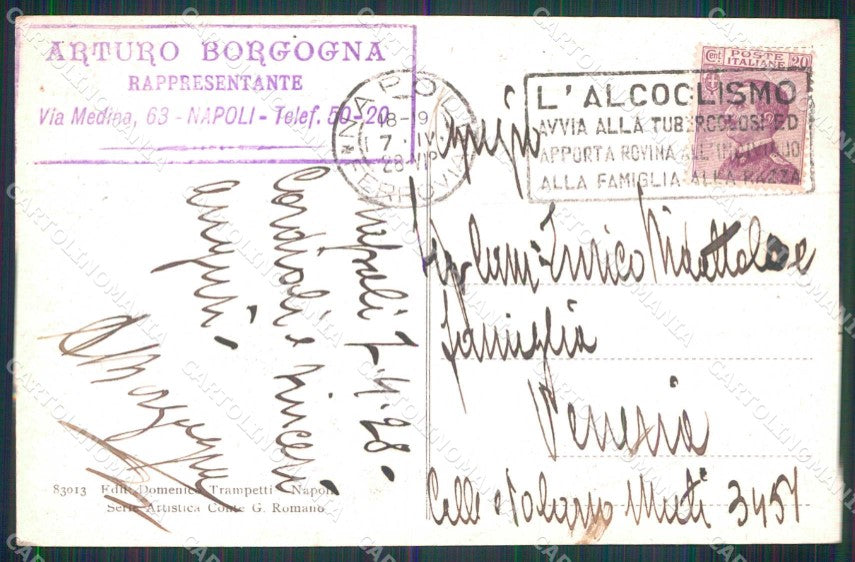 ARTURO BORGOGNA
RAPPRESENTANTE
Via Medina, 63 - NAPOLI - Telef. 50-20
NAPOLI
18-19
7. IV
28 VI
FERROVIA
L'ALCOOLISMO
AVVIA ALLA TUBERCOLOSI ED
APPORTA ROVINA ALL'INDIVIDUO
ALLA FAMIGLIA ALLA RAZZA
POSTE
ITALIANE
Cent
20
Napoli 7.4.28.
Cordiali e sinceri
auguri.
Enrico
famiglia
Venezia
Calle 3457
83013 Edit. Domenico Trampetti - Napoli
Serie Artistica Conte G. Romano
CARTOLINOMANIA